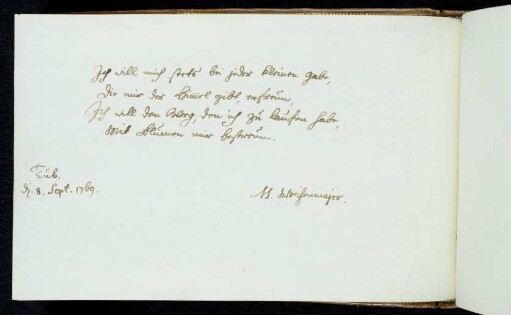 Ich will mich stets bei jeder kleinen Gabe,
Die mir der Himmel gibt, erfreuen,
Ich will den Weg, den ich zu laufen habe,
Mit Blumen mir bestreuen.
Tüb.
d. 8. Sept. 1769.
M.